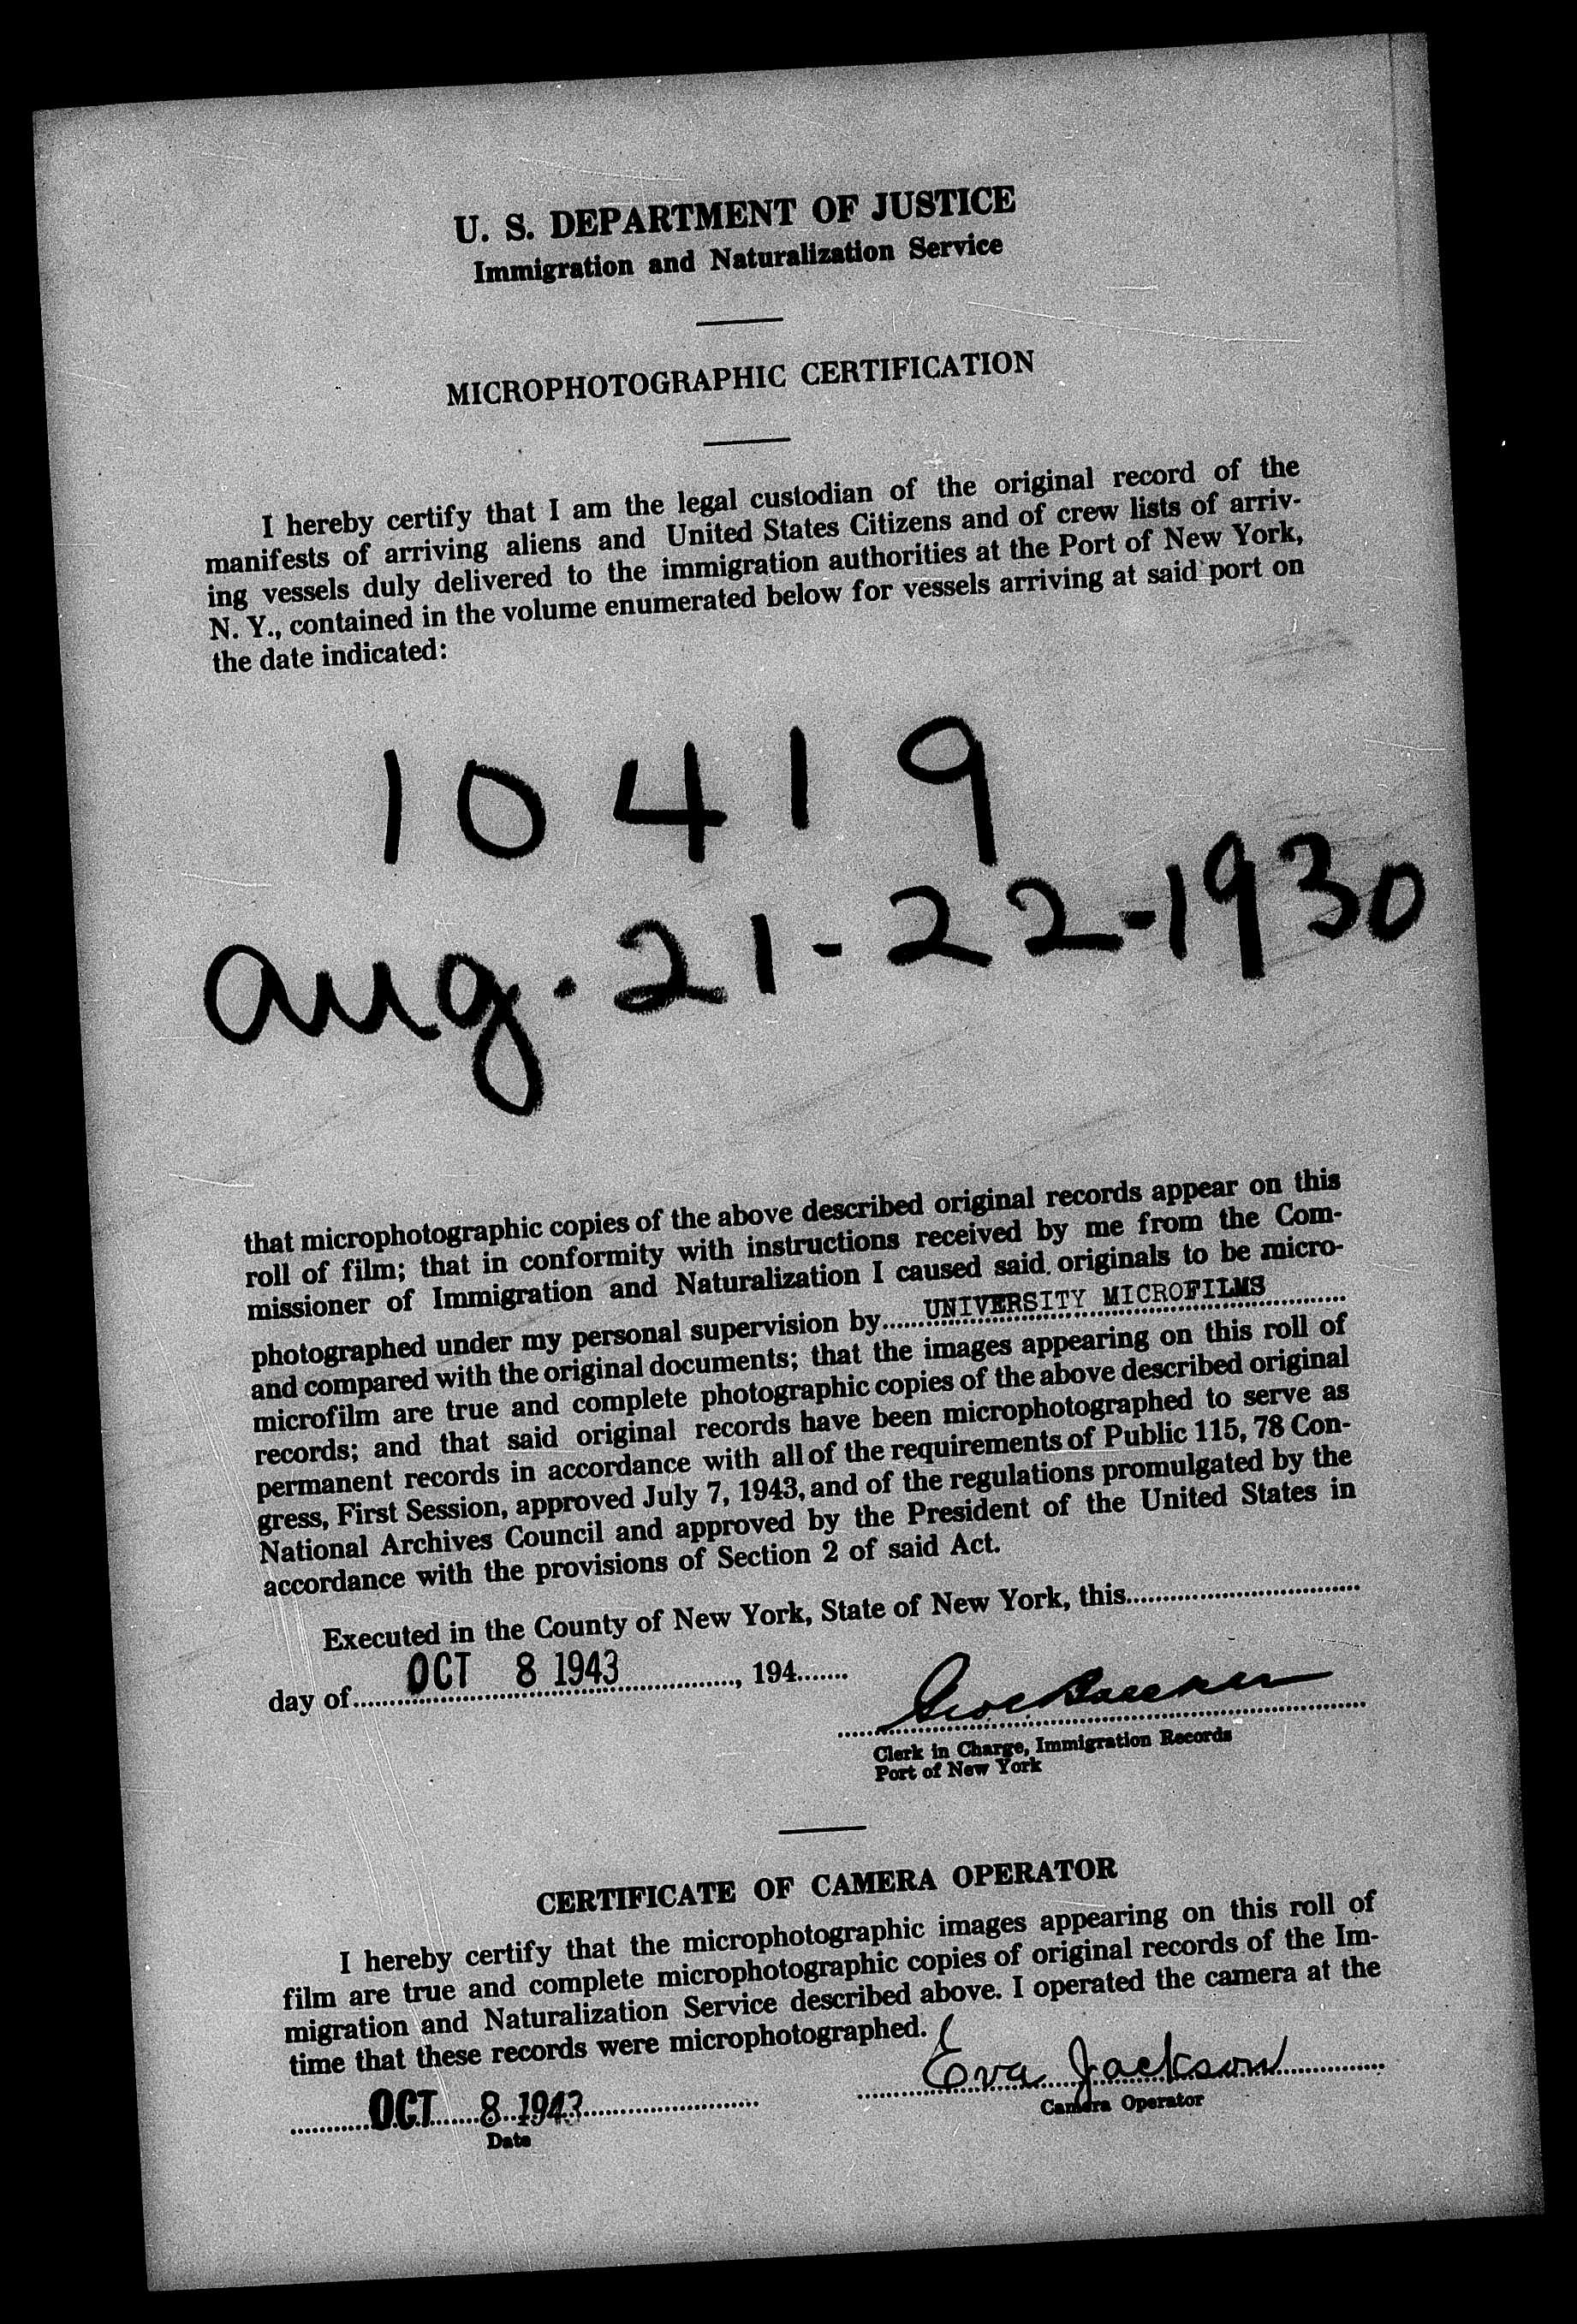 U. S. DEPARTMENT OF JUSTICE
Immigration and Naturalization Service
MICROPHOTOGRAPHIC CERTIFICATION
I hereby certify that I am the legal custodian of the original record of the
manifests of arriving aliens and United States Citizens and of crew lists of arriv-
ing vessels duly delivered to the immigration authorities at the Port of New York,
N. Y., contained in the volume enumerated below for vessels arriving at said port on
the date indicated:
10419
Aug. 21-22-1930
that microphotographic copies of the above described original records appear on this
roll of film; that in conformity with instructions received by me from the Com-
missioner of Immigration and Naturalization I caused said originals to be micro-
photographed under my personal supervision by......UNIVERSITY MICROFILMS
and compared with the original documents; that the images appearing on this roll of
microfilm are true and complete photographic copies of the above described original
records; and that said original records have been microphotographed to serve as
permanent records in accordance with all of the requirements of Public 115, 78 Con-
gress, First Session, approved July 7, 1943, and of the regulations promulgated by the
National Archives Council and approved by the President of the United States in
accordance with the provisions of Section 2 of said Act.
Executed in the County of New York, State of New York, this
day of OCT 8 1943, 194
Clerk in Charge, Immigration Records
Port of New York
CERTIFICATE OF CAMERA OPERATOR
I hereby certify that the microphotographic images appearing on this roll of
film are true and complete microphotographic copies of original records of the Im-
migration and Naturalization Service described above. I operated the camera at the
time that these records were microphotographed.
Eva Jackson
Camera Operator
OCT 8 1943
Date